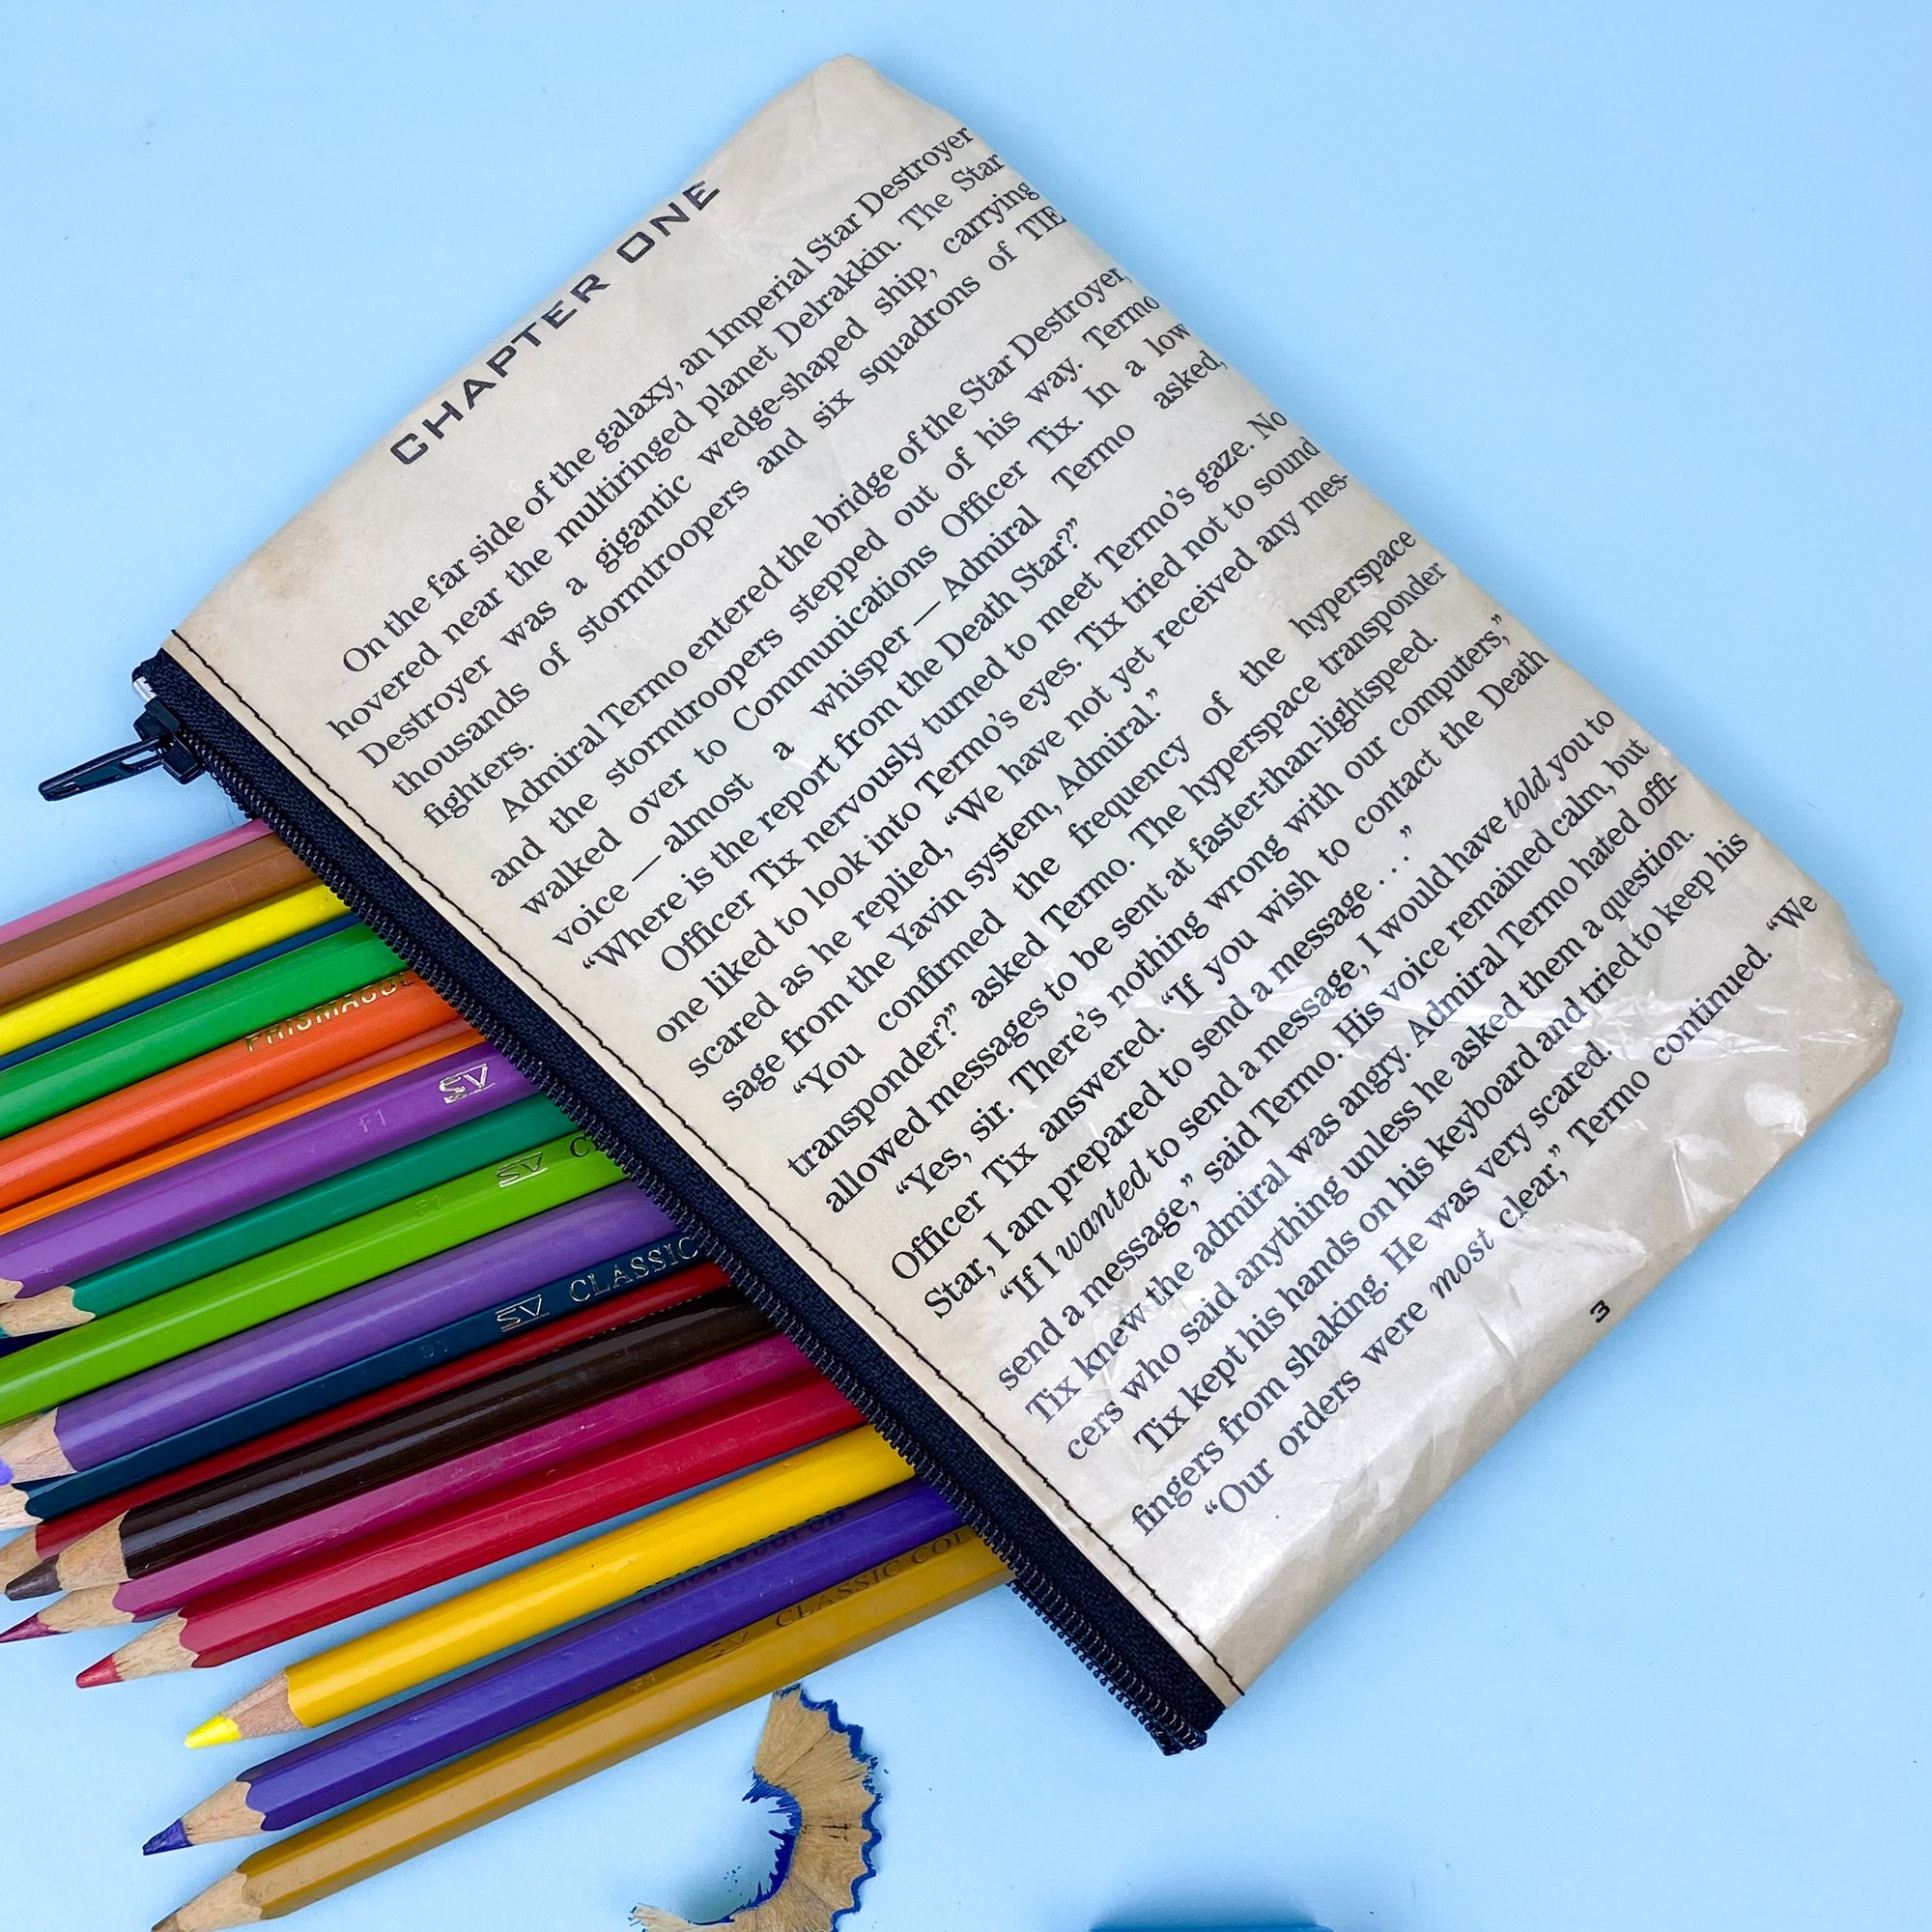 CHAPTER ONE
On the far side of the galaxy, an Imperial Star Destroyer
hovered near the multiringed planet Delrakkin. The Star
Destroyer was a gigantic wedge-shaped ship, carrying
thousands of stormtroopers and six squadrons of TIE
fighters.
Admiral Termo entered the bridge of the Star Destroyer,
and the stormtroopers stepped out of his way. Termo
walked over to Communications Officer Tix. In a low
voice — almost a whisper — Admiral Termo asked,
“Where is the report from the Death Star?”
Officer Tix nervously turned to meet Termo’s gaze. No
one liked to look into Termo’s eyes. Tix tried not to sound
scared as he replied, “We have not yet received any mes-
sage from the Yavin system, Admiral.”
“You confirmed the frequency of the hyperspace
transponder?” asked Termo. The hyperspace transponder
allowed messages to be sent at faster-than-lightspeed.
“Yes, sir. There’s nothing wrong with our computers,”
Officer Tix answered. “If you wish to contact the Death
Star, I am prepared to send a message . . .”
“If I wanted to send a message, I would have told you to
send a message,” said Termo. His voice remained calm, but
Tix knew the admiral was angry. Admiral Termo hated offi-
cers who said anything unless he asked them a question.
Tix kept his hands on his keyboard and tried to keep his
fingers from shaking. He was very scared.
“Our orders were most clear,” Termo continued. “We
3
PRISMACOL
F1 SV
F1 SV C
SV CLASSIC
SV CLASSIC COL